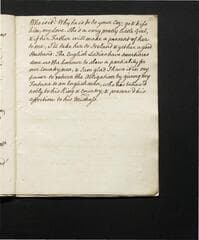 Who is it? Why he is to be your Coz: go & kiss
him, my love. She's a very pretty little Girl,
& if her Father will make a present of her
to me, I'll take her to Ireland & get her a good
Husband. The English Ladies have sometimes
done us the honour to shew a partiality for
our Countrymen, & I am glad I have it in my
power to return the Obligation by giving my
Fortune to an English who has taken a
duty to his King & Country, & preserv'd his
affection to his Mistress.